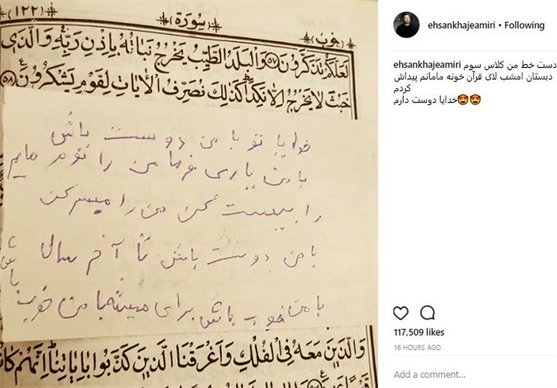 (١٢٢)
سُورَة
لَعَلَّكُمْ تَذَكَّرُونَ ٥٧ وَالْبَلَدُ الطَّيِّبُ يَخْرُجُ نَبَاتُهُ بِإِذْنِ رَبِّهِ وَالَّذِي
خَبُثَ لَا يَخْرُجُ إِلَّا نَكِدًا كَذَٰلِكَ نُصَرِّفُ الْآيَاتِ لِقَوْمٍ يَشْكُرُونَ ٥٨
خدایا تو با من دوست باش
با من یاری فرما من را
را بیست کن من را میسر کن
با من دوست باش تا آخر سال
با من خوب باش برای میشه با من خوب
وَالَّذِينَ مَعَهُ فِي الْفُلْكِ وَأَغْرَقْنَا الَّذِينَ كَذَّبُوا بِآيَاتِنَا إِنَّهُمْ كَانُوا
ehsankhajeamiri • Following
ehsankhajeamiri دست خط من کلاس سوم
دبستان امشب لای قرآن خونه مامانم پیداش
کردم
خدایا دوست دارم😍😍
117,509 likes
16 HOURS AGO
Add a comment...